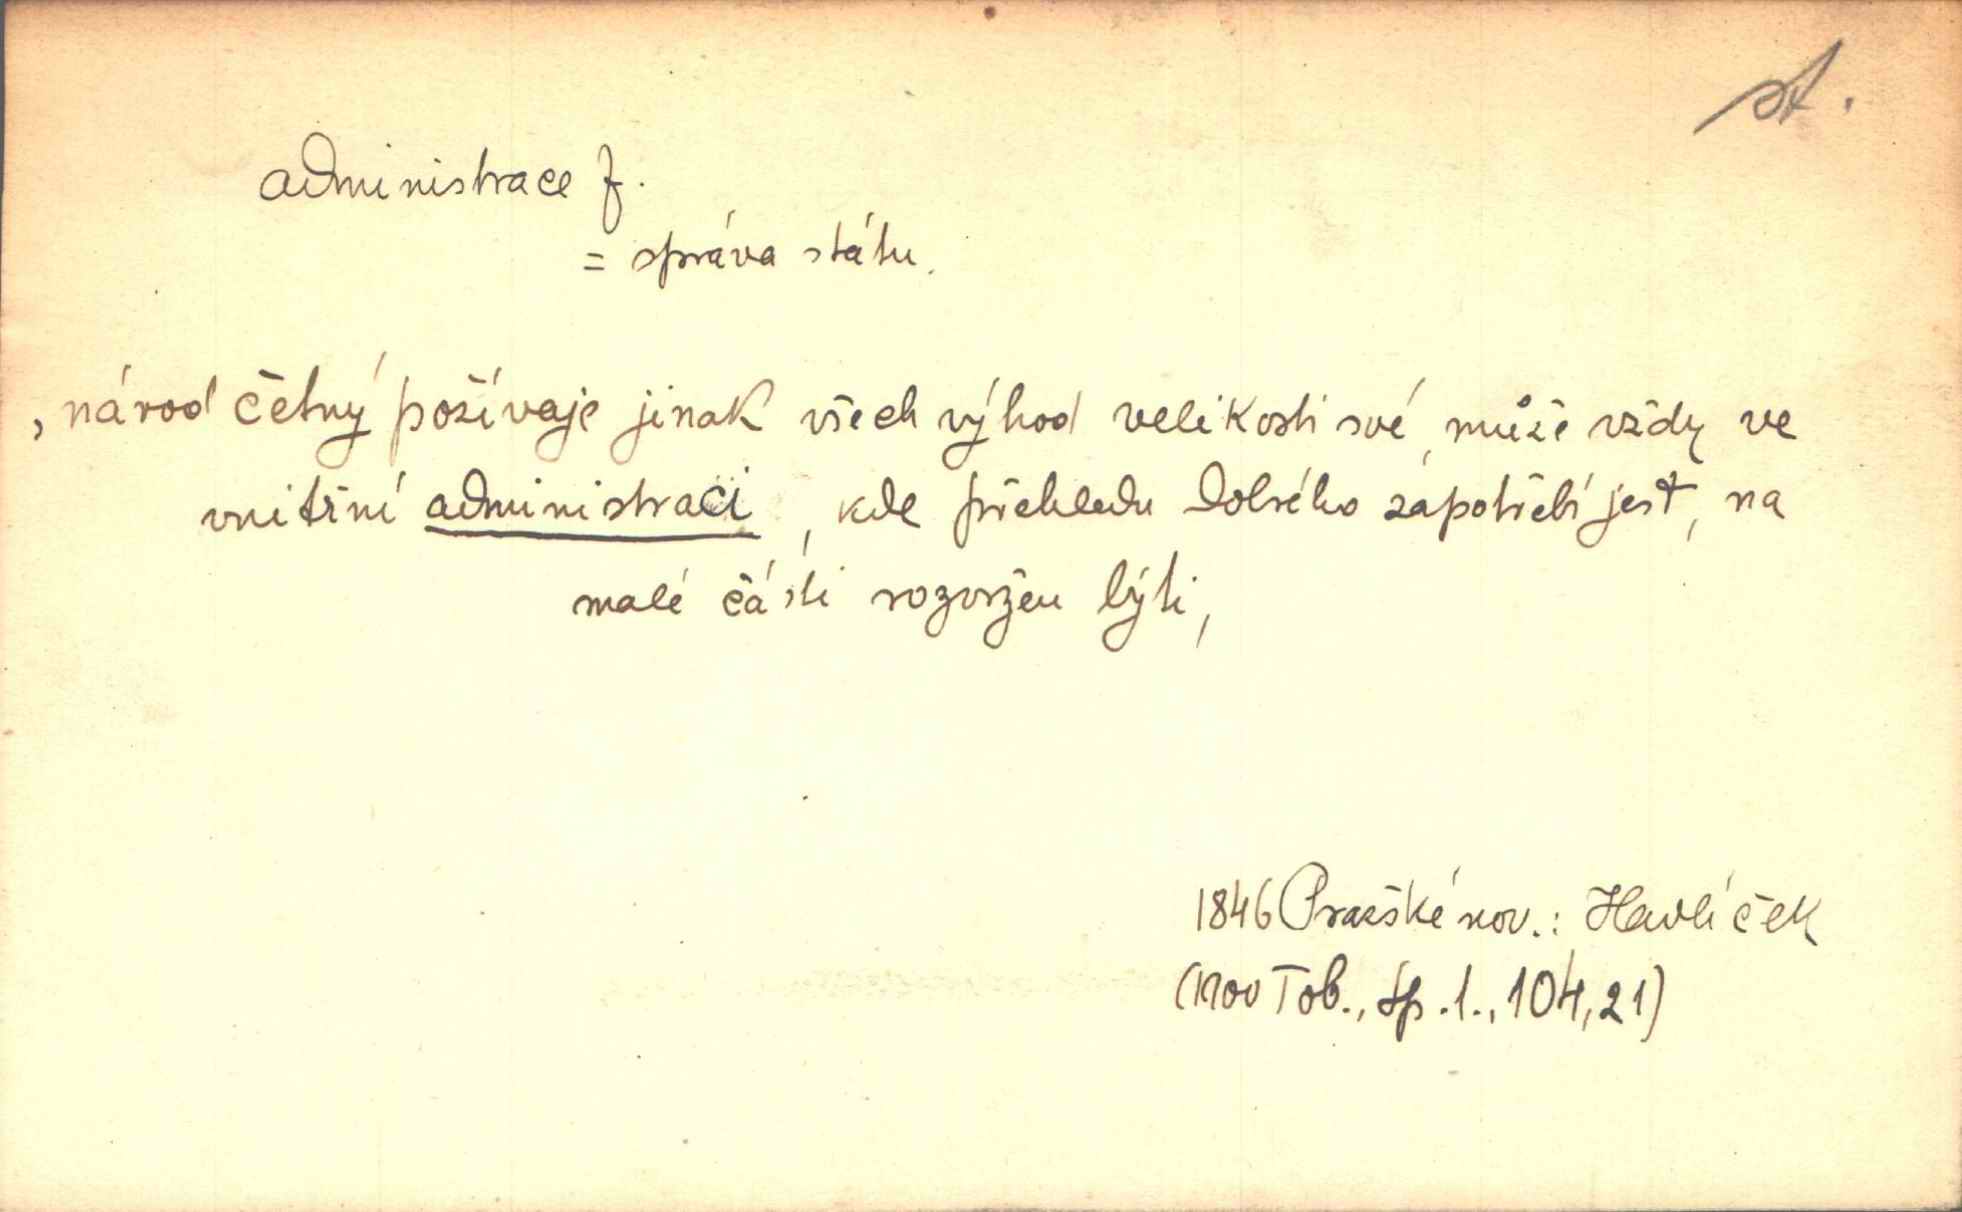 st.
administrace f.
= správa státu.
, národ četný požívaje jinak všech výhod velikosti své, může vždy ve
vnitřní administraci, kde přehledu dobrého zápotřebí jest, na
malé části rozvržen býti,
1846 Pražské nov.: Havlíček
(Nov Tob., Sp. 1., 104, 21)